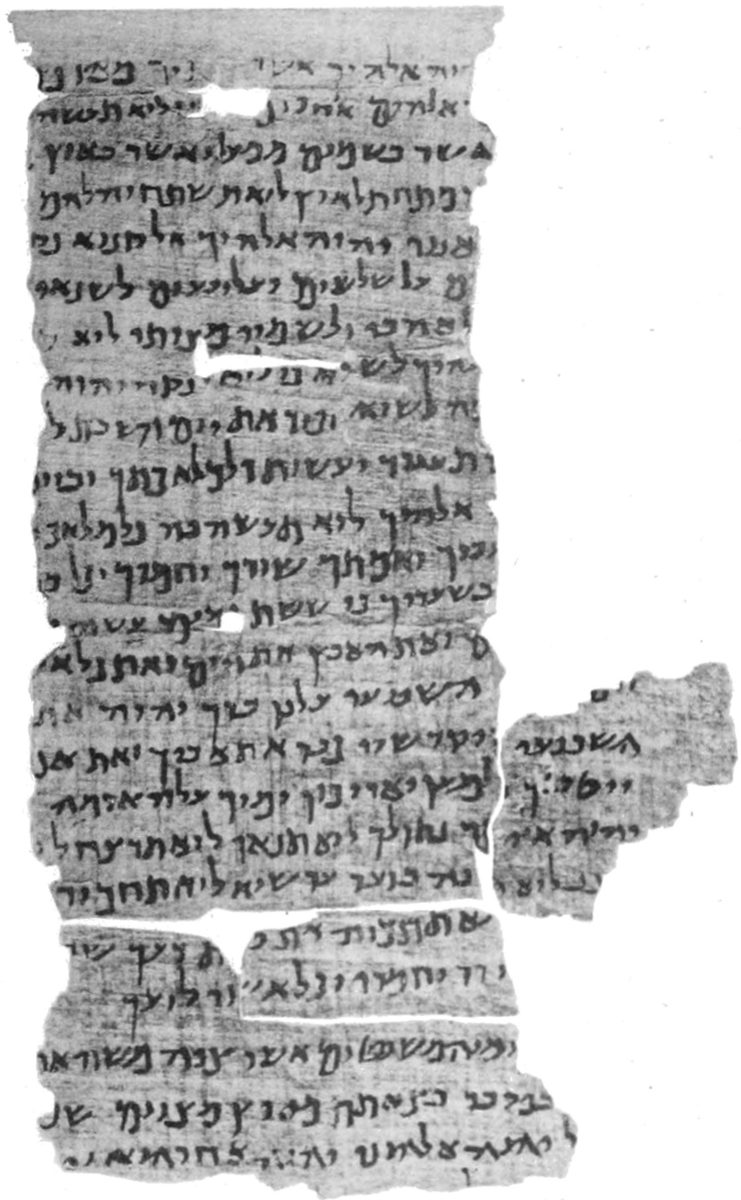 יהוה אלהיך אשר מארץ
אלהים אחרים לוא תעשה
אשר בשמים ממעל ואשר בארץ
מתחת לארץ לוא תשתחוה להם
אנכי יהוה אלהיך אל קנוא
על שלשים ועל רבעים לשנאי
לאהבי ולשמרי מצותי לוא
לוא ינקה יהוה
לשוא זכור את יום השבת ל
תעבוד ועשית כל מלאכתך וביום
אלהיך לוא תעשה בה כל מלאכה
עבדך ואמתך שורך וחמרך וכל ב
בשעריך כי ששת ימים עשה
ם ואת הארץ את הים ואת כל א
השביעי על כן ברך יהוה את
השביעי ויקדשו כבד את אביך ואת אמ
ייטב לך ולמען יאריכון ימיך על האדמה
יהוה אלהיך נתן לך לוא תנאף לוא תרצח לו
לוא ברעך עד שוא לוא תחמוד
את בית רעך
וחמרו וכל אשר לרעך
והמשפטים אשר צוה משה את
במדבר בצאתם מארץ מצרים שמ
ל יהוה אלהינו יהוה אחד הוא